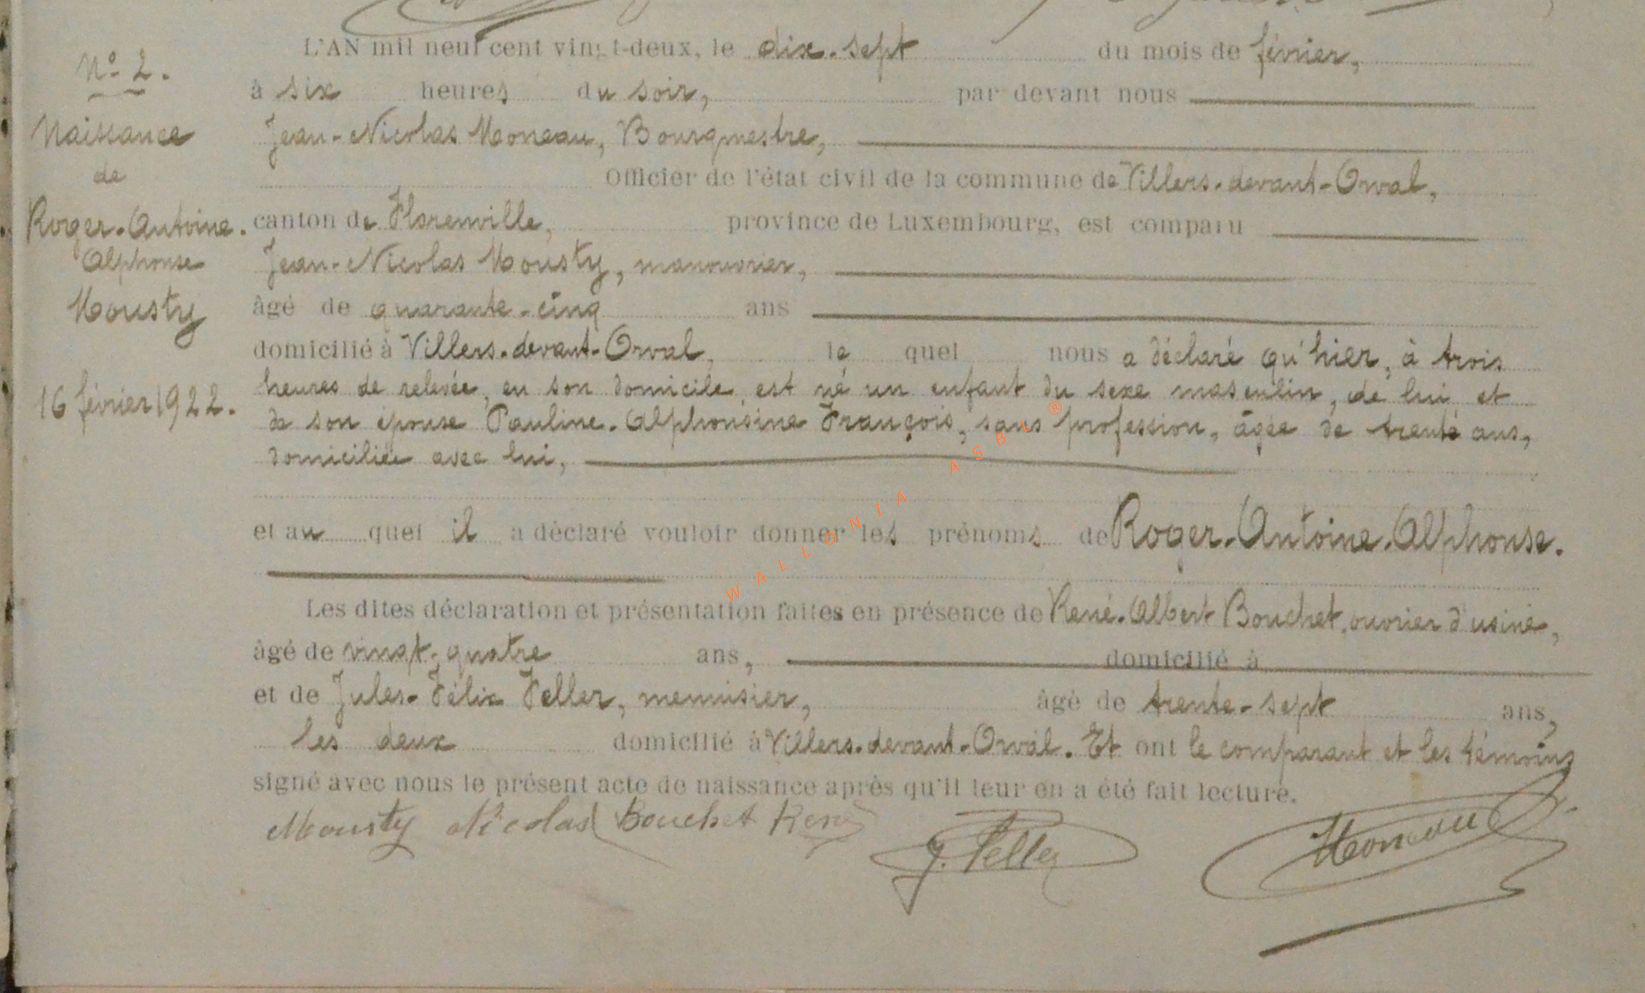 N° 2.
Naissance
de
Roger-Antoine-
Alphonse
Mousty
16 février 1922.
L'AN mil neuf cent vingt-deux, le dix-sept du mois de février,
à six heures du soir, par devant nous
Jean-Nicolas Moneau, Bourgmestre,
Officier de l'état civil de la commune de Villers-devant-Orval,
canton de Florenville, province de Luxembourg, est comparu
Jean-Nicolas Mousty, manouvrier,
âgé de quarante-cinq ans
domicilié à Villers-devant-Orval, le quel nous a déclaré qu'hier, à trois
heures de relevée, en son domicile, est né un enfant du sexe masculin, de lui et
de son épouse Pauline-Alphonsine François, sans profession, âgée de trente ans,
domiciliée avec lui,
et au quel il a déclaré vouloir donner les prénoms de Roger-Antoine-Alphonse.
Les dites déclaration et présentation faites en présence de René-Albert Bouchet, ouvrier d'usine,
âgé de vingt-quatre ans, domicilié à
et de Jules-Félix Feller, menuisier, âgé de trente-sept ans,
les deux domicilié à Villers-devant-Orval. Et ont le comparant et les témoins
signé avec nous le présent acte de naissance après qu'il leur en a été fait lecture.
Mousty Nicolas Bouchet René J. Feller Moneau
WALLONIA ASBL ®